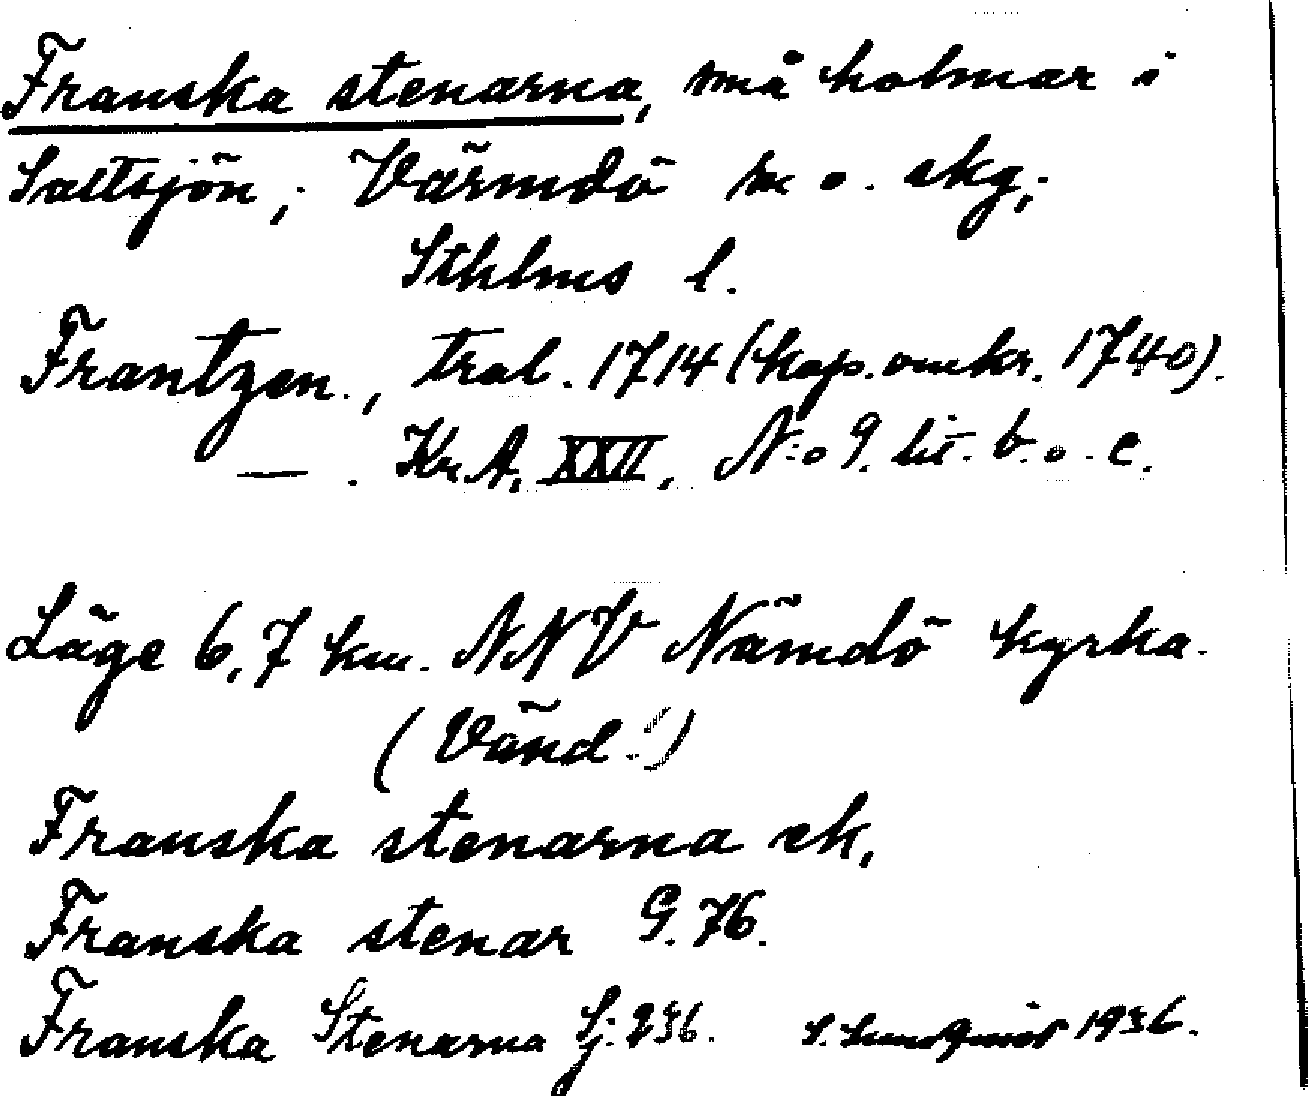 Franska stenarna, små holmar i
Saltsjön, Värmdö sn o. skg,
Sthlms l.
Frantzen., tral. 1714 (kop. omkr. 1740).
— . Kr.A. XXII, N:o 9. lit. b. o. c.
Läge 6,7 km. NNV Nämdö kyrka.
(Vänd!)
Franska stenarna ek,
Franska stenar G. 76.
Franska Stenarna Sj: 236. S. Lundqvist 1936.